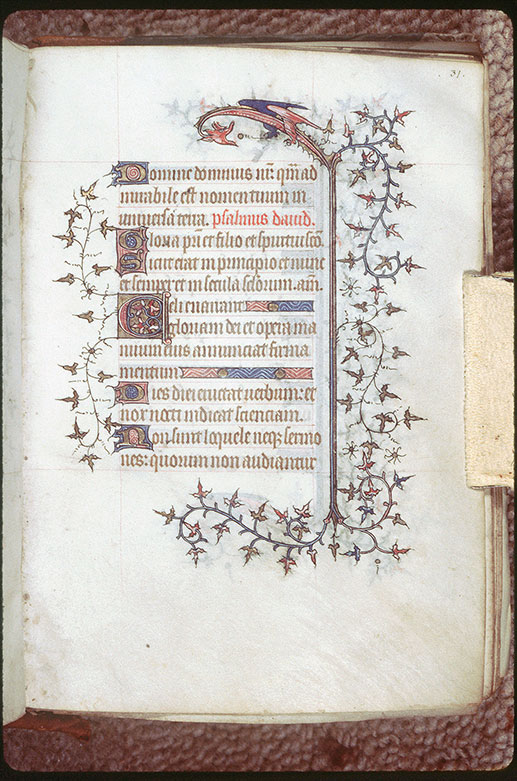 31.
Domine dominus nr̄ qm̄ ad
mirabile est nomen tuum in
universa terra. psalmus david.
Gloria pr̄i et filio et spiritui sc̄o
Sicut erat in principio et nunc
et semper et in secula sc̄lorum. am̄.
Celi enarrant
gloriam dei et opera ma
nuum eius annunciat firma
mentum
Dies diei eructat verbum: et
nox nocti indicat scienciam.
Non sunt loquele neqꝫ sermo
nes: quorum non audiantur